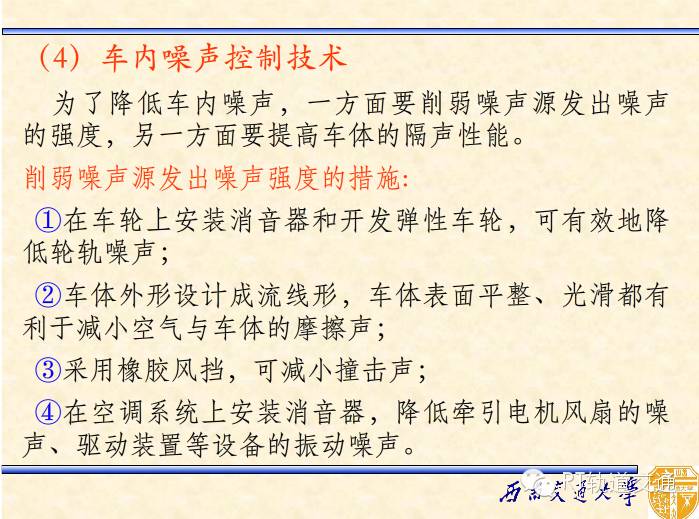 （4）车内噪声控制技术
为了降低车内噪声，一方面要削弱噪声源发出噪声
的强度，另一方面要提高车体的隔声性能。
削弱噪声源发出噪声强度的措施:
①在车轮上安装消音器和开发弹性车轮，可有效地降
低轮轨噪声；
②车体外形设计成流线形，车体表面平整、光滑都有
利于减小空气与车体的摩擦声；
③采用橡胶风挡，可减小撞击声；
④在空调系统上安装消音器，降低牵引电机风扇的噪
声、驱动装置等设备的振动噪声。
西南交通大学
RT轨道交通